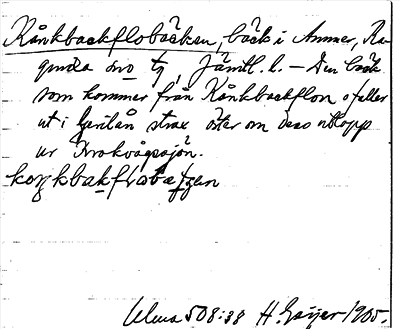 Kånkbackflobäcken, bäck i Ammer, Ra-
gunda sno tg, Jämtl. l. – Den bäck
som kommer från Kånkbackflon o faller
ut i Gerilån strax öster om dess utlopp
ur Krokvågssjön.
Ulma 508:38 H. Geijer 1905.